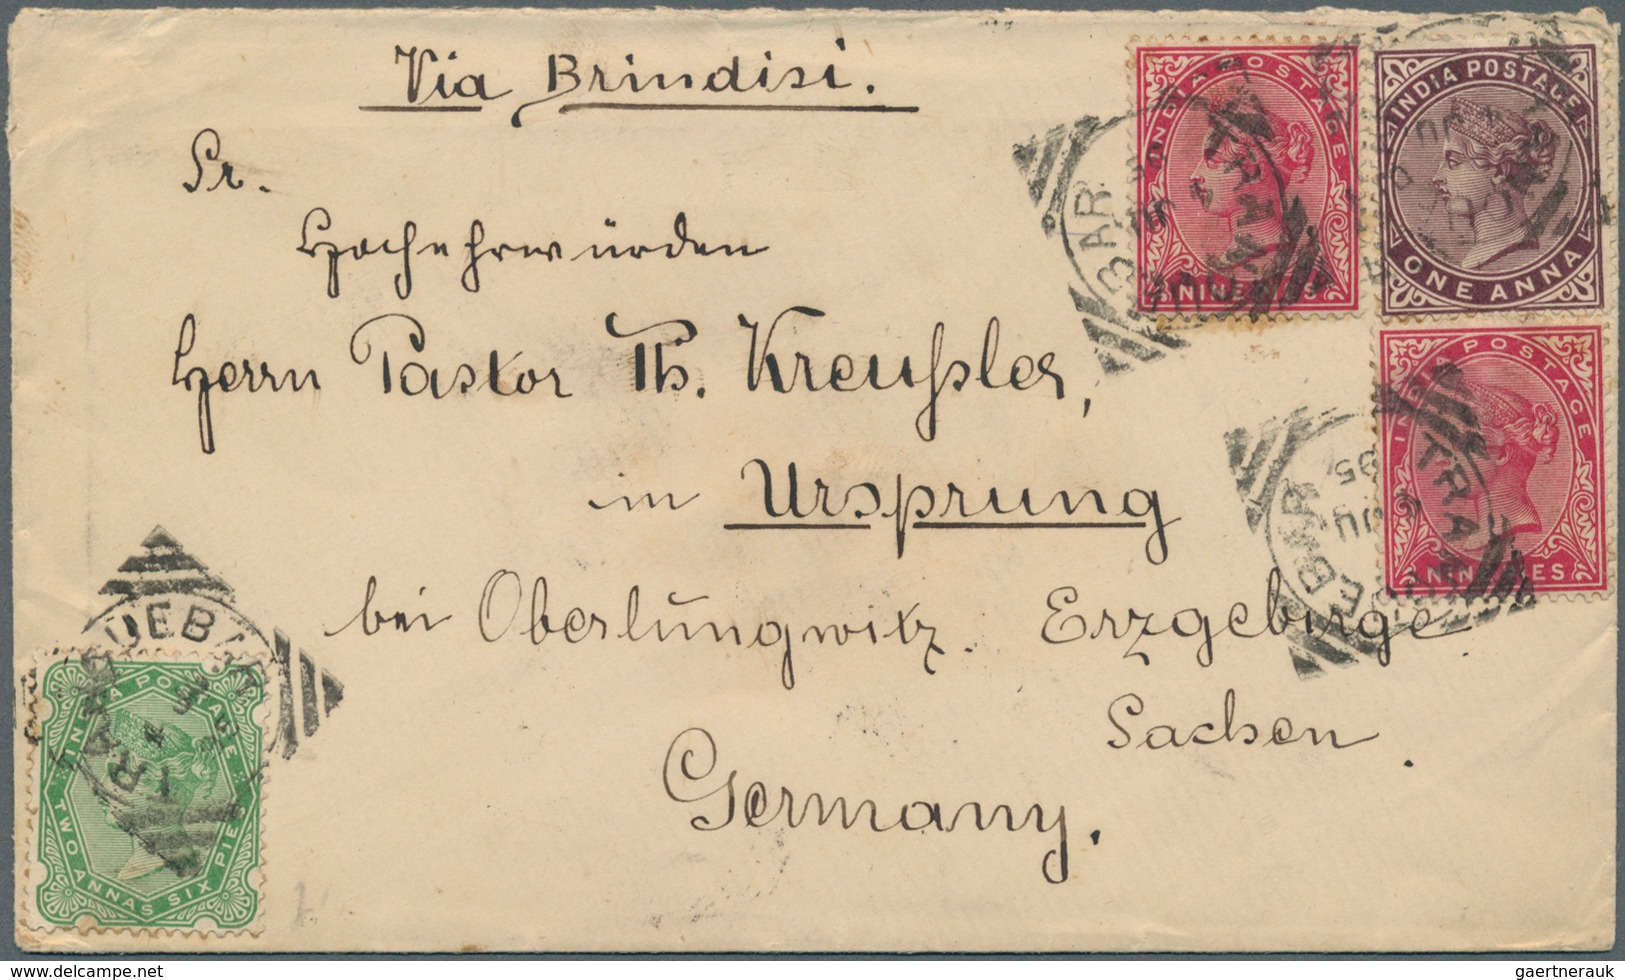 Via Brindisi.
Sr.
Hochehrwürden
Herrn Pastor Th. Kreußler,
in Ursprung
bei Oberlungwitz. Erzgebirge
Sachsen.
Germany.
INDIA POSTAGE
NINE PIES
INDIA POSTAGE
ONE ANNA
INDIA POSTAGE
NINE PIES
INDIA POSTAGE
TWO ANNAS SIX PIES
TRANQUEBAR
gaertnerauk